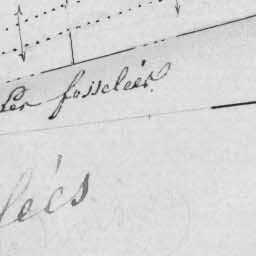 Les fossclées.
lées